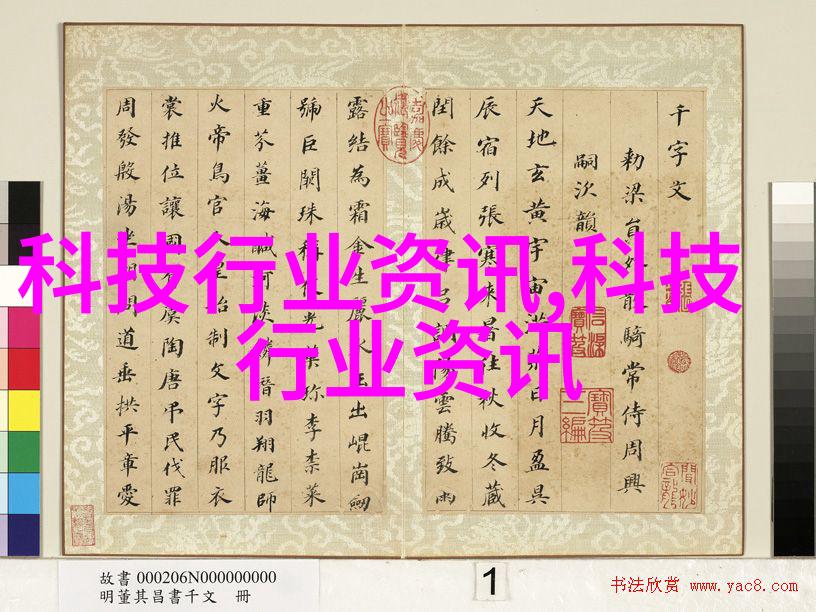 千字文
勑梁員外散騎常侍周興
嗣次韻
天地玄黃宇宙洪荒日月盈昃
辰宿列張寒來暑往秋收冬藏
閏餘成歲律呂調陽雲騰致雨
露結為霜金生麗水玉出崐崗劒
號巨闕珠稱夜光菓珎李柰菜
重芥薑海鹹河淡鱗潛羽翔龍師
火帝鳥官人皇始制文字乃服衣
裳推位讓國有虞陶唐弔民伐罪
周發殷湯坐朝問道垂拱平章愛
科技行业资讯,科技
行业资讯
故書 000206N000000000
明董其昌書千文 冊
1
书法欣赏 www.yac8.com